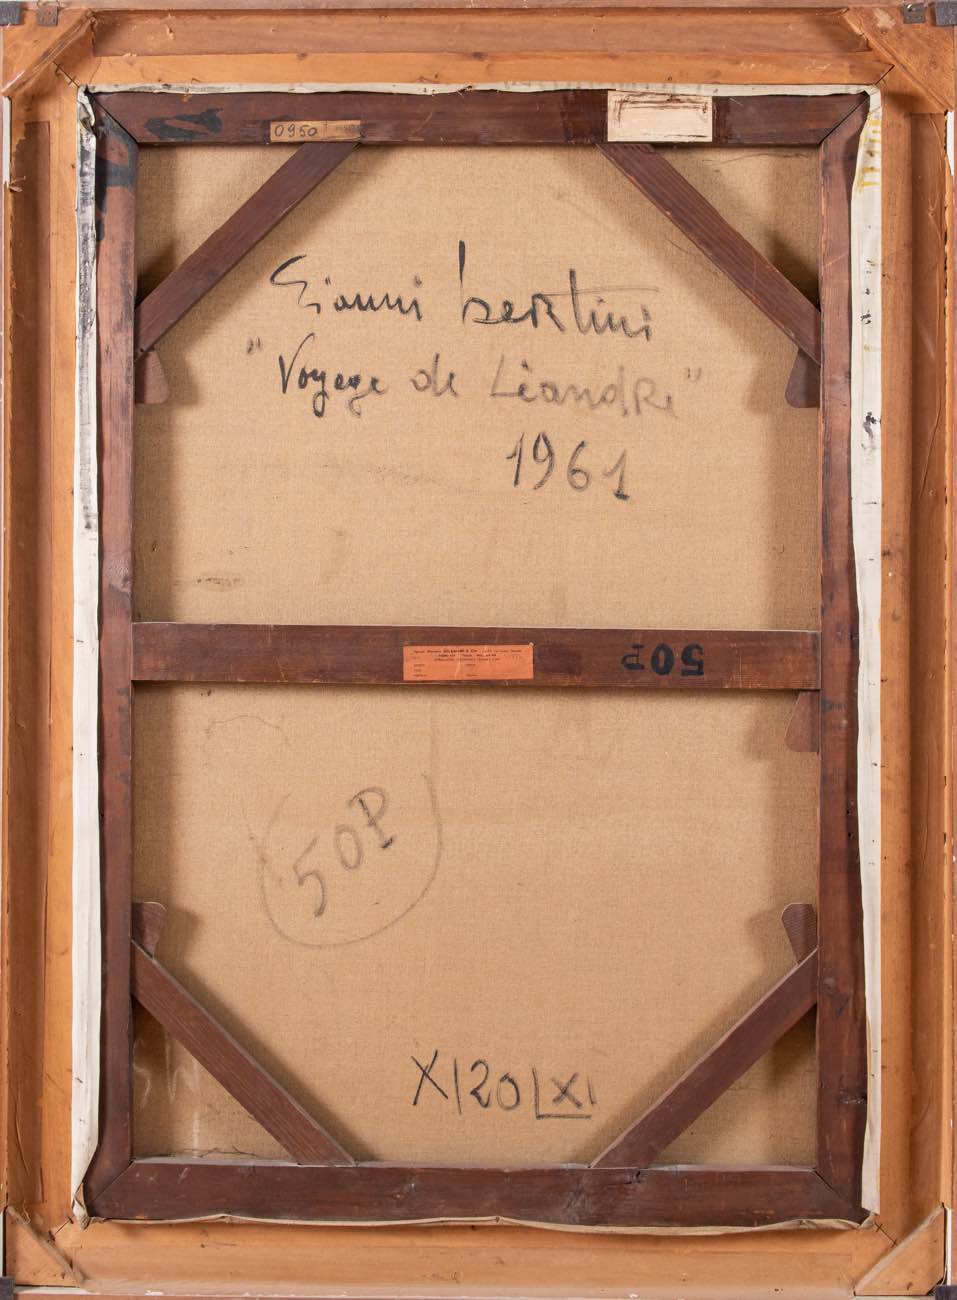 0950
Gianni bertini
"Voyage de Léandre"
1961
50P
50P
X|20|XI